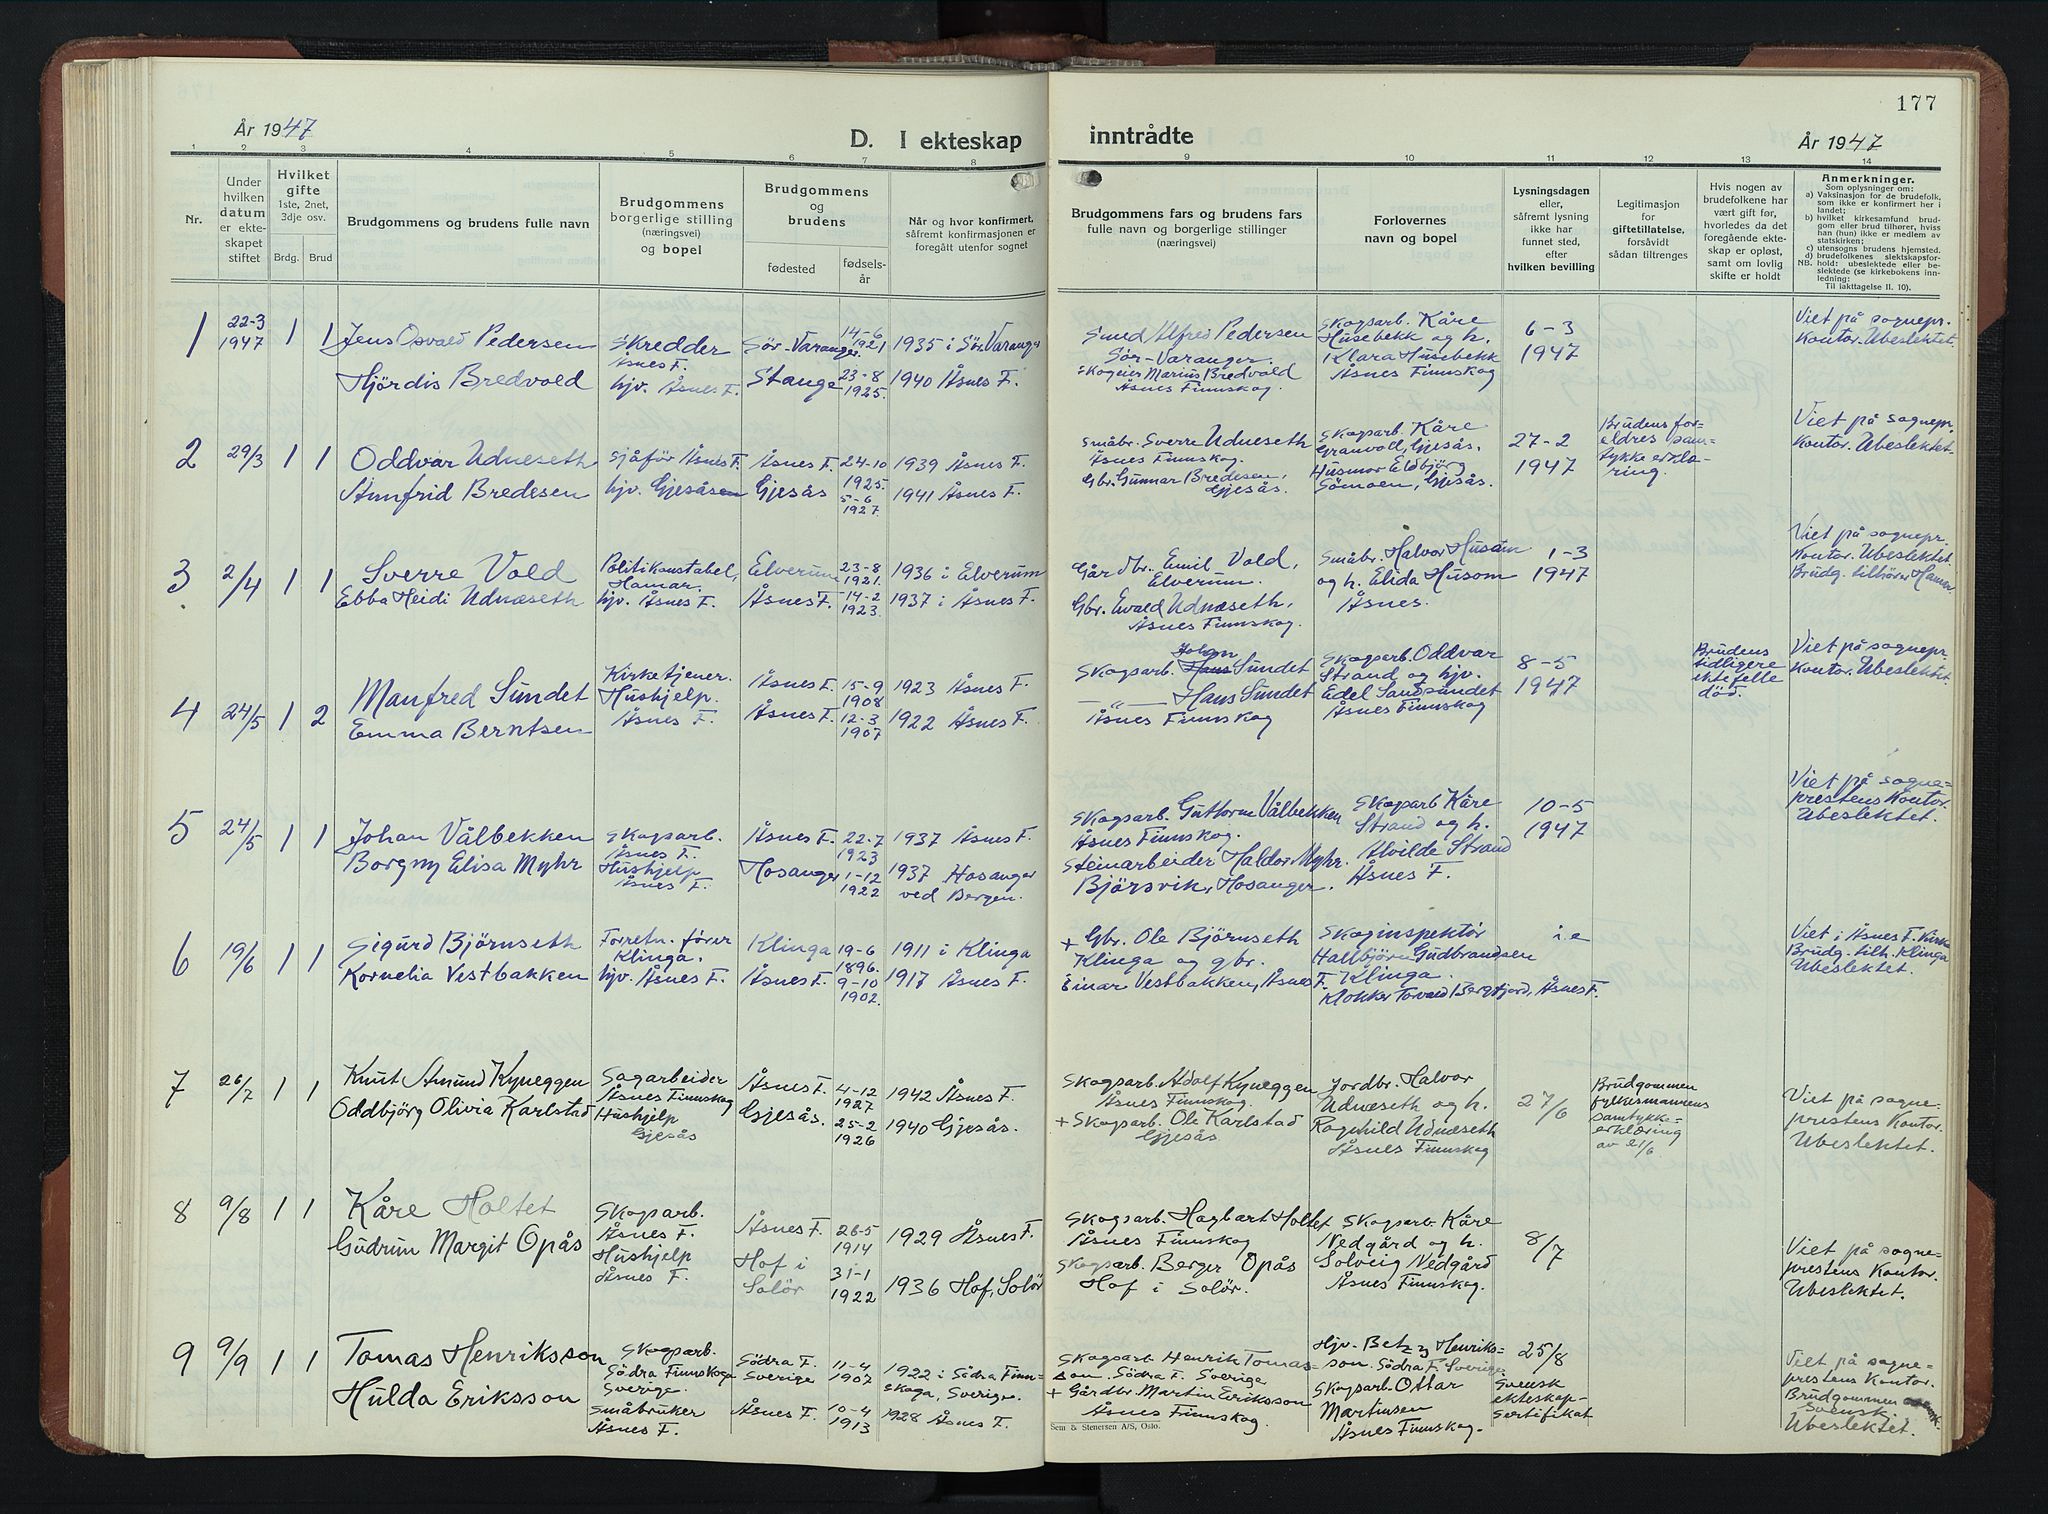 177
År 1947
D. I ekteskap
inntrådte
År 1947
1 2 3 4 5 6 7 8 9 10 11 12 13 14
Nr.
Under
hvilken
datum
er ekte-
skapet
stiftet
Hvilket
gifte
1ste, 2net,
3dje osv.
Brdg. Brud
Brudgommens og brudens fulle navn
Brudgommens
borgerlige stilling
(næringsvei)
og bopel
Brudgommens
og
brudens
fødested
fødsels-
år
Når og hvor konfirmert,
såfremt konfirmasjonen er
foregått utenfor sognet
Brudgommens fars og brudens fars
fulle navn og borgerlige stillinger
(næringsvei)
Forlovernes
navn og bopel
Lysningsdagen
eller,
såfremt lysning
ikke har
funnet sted,
efter
hvilken bevilling
Legitimasjon
for
giftetillatelse,
forsåvidt
sådan tiltrenges
Hvis nogen av
brudefolkene har
vært gift før,
hvorledes da det
foregående ekte-
skap er opløst,
samt om lovlig
skifte er holdt
Anmerkninger.
Som oplysninger om:
a) Vaksinasjon for de brudefolk,
som ikke er konfirmert her i
landet;
b) hvilket kirkesamfund brud-
gom eller brud tilhører, hviss
han (hun) ikke er medlem av
statskirken;
c) utensogns brudens hjemsted.
d) brudefolkenes slektskapsfor-
NB. hold: ubeslektede eller be-
slektede (se kirkebokens inn-
ledning;
Til iakttagelse II. 10).
1 22-3 1947 1 1
Jens Osvald Pedersen
Hjördis Bredvold
Skredder
Åsnes F.
hjv. Åsnes F.
Sör-Varanger. 14-6 1921
Stange 23-8 1925.
1935 i Sör Varanger
1940 Åsnes F.
Smed Alfred Pedersen
Sör-Varanger.
Skogeier Marius Bredvold
Åsnes Finnskog.
Skogsarb. Kåre
Husebekk og h.
Klara Husebekk
Åsnes Finnskog
6-3
1947
Viet på sognepr.
Kontor. Ubeslektet.
2 29/3 1 1
Oddvar Udneseth
Annfrid Bredesen
Sjåför Åsnes F.
hjv. Gjesåsen
Åsnes F. 24-10 1925.
Gjesås 5-6 1927.
1939 Åsnes F.
1941 Åsnes F.
Småbr. Sverre Udneseth
Åsnes Finnskog.
Gbr. Gunnar Bredesen,
Gjesås.
Skogsarb. Kåre
Granvold, Gjesås.
Husmor Eldbjörg
Sömoen, Gjesås.
27-2
1947
Brudens for-
eldres sam-
tykke erklæ-
ring.
Viet på sognepr.
Kontor. Ubeslektet.
3 2/4 1 1
Sverre Vold
Ebba Heidi Udnæseth
Politikonstabel,
Hamar.
hjv. Åsnes F.
Elverum 23-8 1921.
Åsnes F. 14-2 1923.
1936 i Elverum
1937 i Åsnes F.
Gårdbr. Emil Vold,
Elverum.
Gbr. Ewald Udnæseth,
Åsnes Finnskog.
Småbr. Halvor Husom
og h. Elida Husom
Åsnes.
1-3
1947
Viet på sognepr.
Kontor. Ubeslektet.
Brudg. tilhörer Hamar.
4 24/5 1 2
Manfred Sundet
Emma Berntsen
Kirketjener.
Hushjelp.
Åsnes F.
Åsnes F. 15-9 1908
Åsnes F. 12-3 1907
1923 Åsnes F.
1922 Åsnes F.
Johan
Skogsarb. Hans Sundet
—"— Hans Sundet
Åsnes Finnskog
Skogsarb. Oddvar
Strand og hjv.
Edel Sandsundet
Åsnes Finnskog
8-5
1947
Brudens
tidligere
ektefelle
död.
Viet på sognepr
Kontor. Ubeslektet.
5 24/5 1 1
Johan Vålbekken
Borgny Elisa Myhr
Skogsarb.
Åsnes F.
Hushjelp
Åsnes F.
Åsnes F. 22-7 1923
Hosanger 1-12 1922
1937 Åsnes F.
1937 Hosanger
ved Bergen.
Skogsarb. Guttorm Vålbekken
Åsnes Finnskog.
Steinarbeider Haldor Myhr.
Björsvik, Hosanger.
Skogsarb Kåre
Strand og h.
Alvilde Strand
Åsnes F.
10-5
1947
Viet på sogne-
prestens Kontor.
Ubeslektet.
6 19/6 1 1
Sigurd Björnseth
Kornelia Vestbakken
Forretn. förer
Klinga.
hjv. Åsnes F.
Klinga 19-6 1896.
Åsnes F. 9-10 1902.
1911 i Klinga
1917 Åsnes F.
+ Gbr. Ole Björnseth
Klinga og gbr.
Einar Vestbakken, Åsnes F.
Skoginspektör
Hallbjörn Gudbrandsen
Klinga.
Klokker Torvald Bergfjord, Åsnes F.
i.e
Viet i Åsnes F. Kirke
Brudg. tilh. Klinga
Ubeslektet.
7 26/7 1 1
Knut Amund Kyneggen
Oddbjörg Olivia Karlstad
Sagarbeider
Åsnes Finnskog
Hushjelp
Gjesås
Åsnes F. 4-12 1927
Gjesås. 25-2 1926
1942 Åsnes F.
1940 Gjesås.
Skogsarb. Adolf Kyneggen
Åsnes Finnskog.
+ Skogsarb. Ole Karlstad
Gjesås
Jordbr. Halvor
Udnæseth og h.
Ragnhild Udnæseth
Åsnes Finnskog
27/6
Brudgommen
fylkesmannens
samtykke-
erklæring
av 21/6
Viet på sogne-
prestens Kontor.
Ubeslektet.
8 9/8 1 1
Kåre Holtet
Gudrun Margit Opås
Skogsarb.
Åsnes F.
Hushjelp
Åsnes F.
Åsnes F. 26-5 1914
Hof i Solör 31-1 1922
1929 Åsnes F.
1936 Hof, Solör
Skogsarb. Hagbart Holtet
Åsnes Finnskog
Skogsarb. Berger Opås
Hof i Solör.
Skogsarb. Kåre
Nedgård og h.
Solveig Nedgård
Åsnes Finnskog.
8/7
Viet på sogne-
prestens Kontor.
Ubeslektet.
9 9/9 1 1
Tomas Henriksson
Hulda Eriksson
Skogsarb.
Södra Finnskoga
Sverige.
Småbruker
Åsnes F.
Södra F. Sverige 11-4 1907
Åsnes F. 10-4 1913
1922 i Södra Finn-
skoga, Sverige.
1928 Åsnes F.
Skogsarb. Henrik Tomas-
son. Södra F. Sverige
+ Gårdbr. Martin Eriksson
Åsnes Finnskog.
Hjv. Betzy Henriks-
son. Södra F. Sverige
Skogsarb. Ottar
Martinsen
Åsnes Finnskog.
25/8
Svensk
ekteskap-
sertifikat
Viet på sogne-
prestens Kontor.
Brudgommen
Svensk
Ubeslektet.
Sem & Stenersen A/S, Oslo.